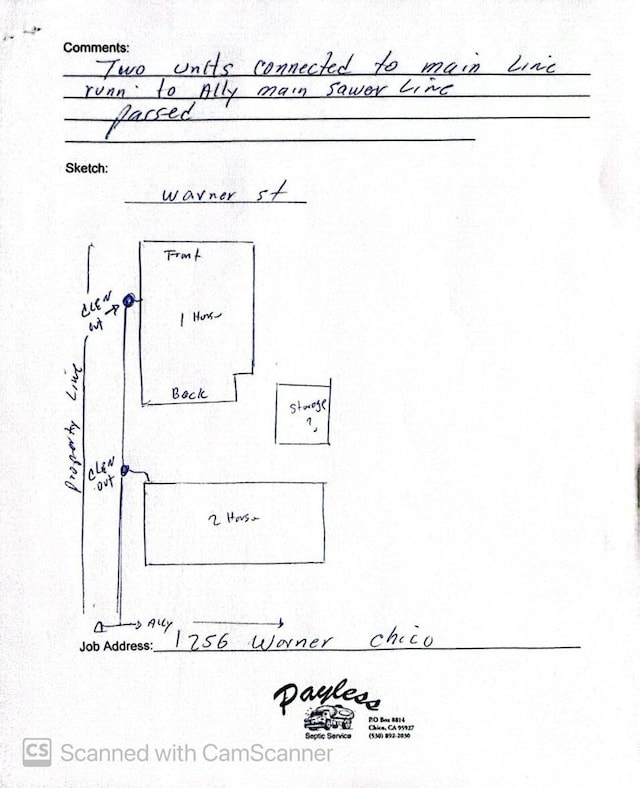 Comments:
Two units connected to main Line
runn. to Ally main sawer Line
passed
Sketch:
Warner st
Front
CLEN
out
1 House
Back
Property Line
Storage
?
CLEN
out
2 House
Ally
Job Address: 1256 Warner chico
Payless
Septic Service
PO Box 8814
Chico, CA 95927
(530) 892-2030
CS Scanned with CamScanner